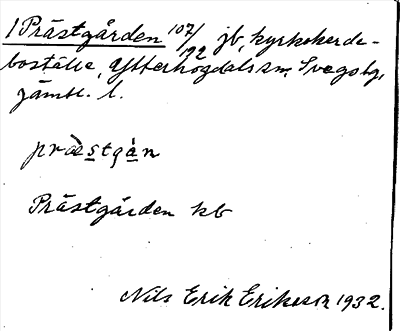 1 Prästgården 107/192 jb, kyrkoherde-
boställe, Ytterhogdals sn, Svegs tg,
Jämtl. l.
præstgàn
Prästgården kb
Nils Erik Erikson 1932.